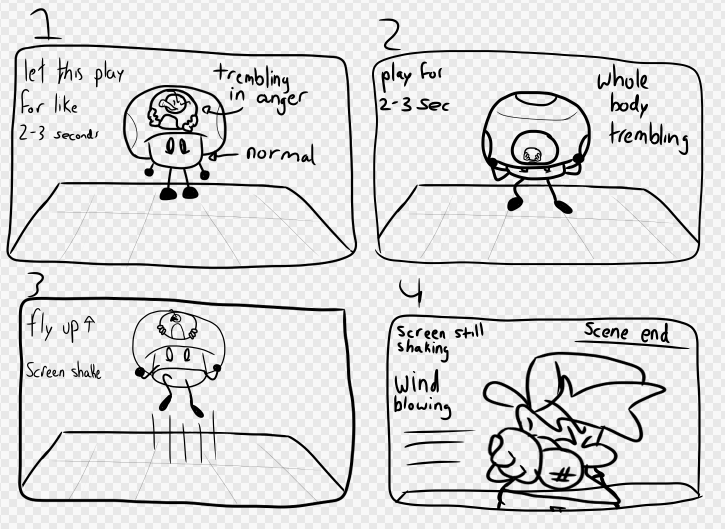 1
let this play
for like
2-3 seconds
trembling
in anger
normal
2
play for
2-3 sec
whole
body
trembling
3
fly up↑
Screen shake
4
Screen still
shaking
Scene end
Wind
blowing